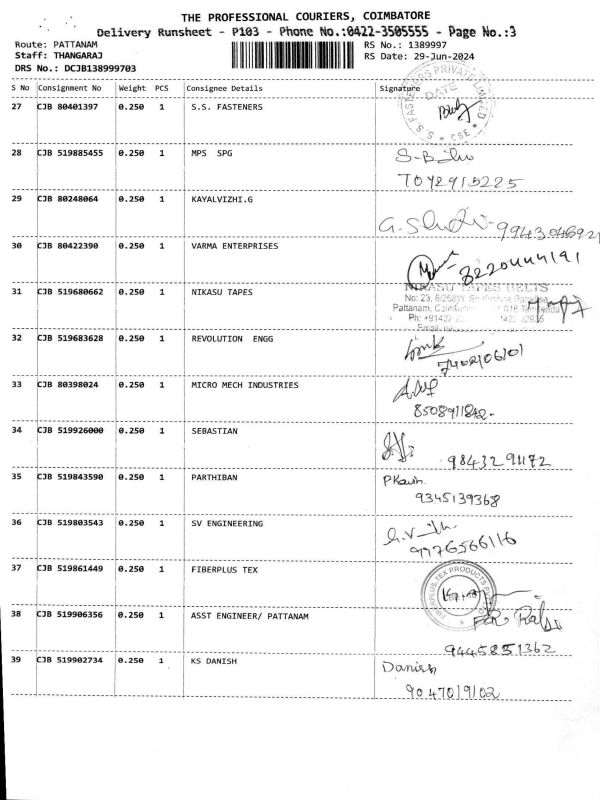 THE PROFESSIONAL COURIERS, COIMBATORE
Delivery Runsheet - P103 - Phone No.:0422-3505555 - Page No.:3
Route: PATTANAM RS No.: 1389997
Staff: THANGARAJ RS Date: 29-Jun-2024
DRS No.: DCJB138999703
S No Consignment No Weight PCS Consignee Details Signature
27 CJB 80401397 0.250 1 S.S. FASTENERS
S.S. FASTENERS PRIVATE LIMITED
DATE
CSE
28 CJB 519885455 0.250 1 MPS SPG
7042915225
29 CJB 80248064 0.250 1 KAYALVIZHI.G
30 CJB 80422390 0.250 1 VARMA ENTERPRISES
8220444191
31 CJB 519680662 0.250 1 NIKASU TAPES
NIKASU TAPES BELTS
No: 23,
Pattanam,
Ph:
Email:
32 CJB 519683628 0.250 1 REVOLUTION ENGG
33 CJB 80398024 0.250 1 MICRO MECH INDUSTRIES
34 CJB 519926000 0.250 1 SEBASTIAN
35 CJB 519843590 0.250 1 PARTHIBAN
9345139368
36 CJB 519803543 0.250 1 SV ENGINEERING
37 CJB 519861449 0.250 1 FIBERPLUS TEX
FIBERPLUS TEX PRODUCTS
38 CJB 519906356 0.250 1 ASST ENGINEER/ PATTANAM
9445851362
39 CJB 519902734 0.250 1 KS DANISH
Danish
9047019102